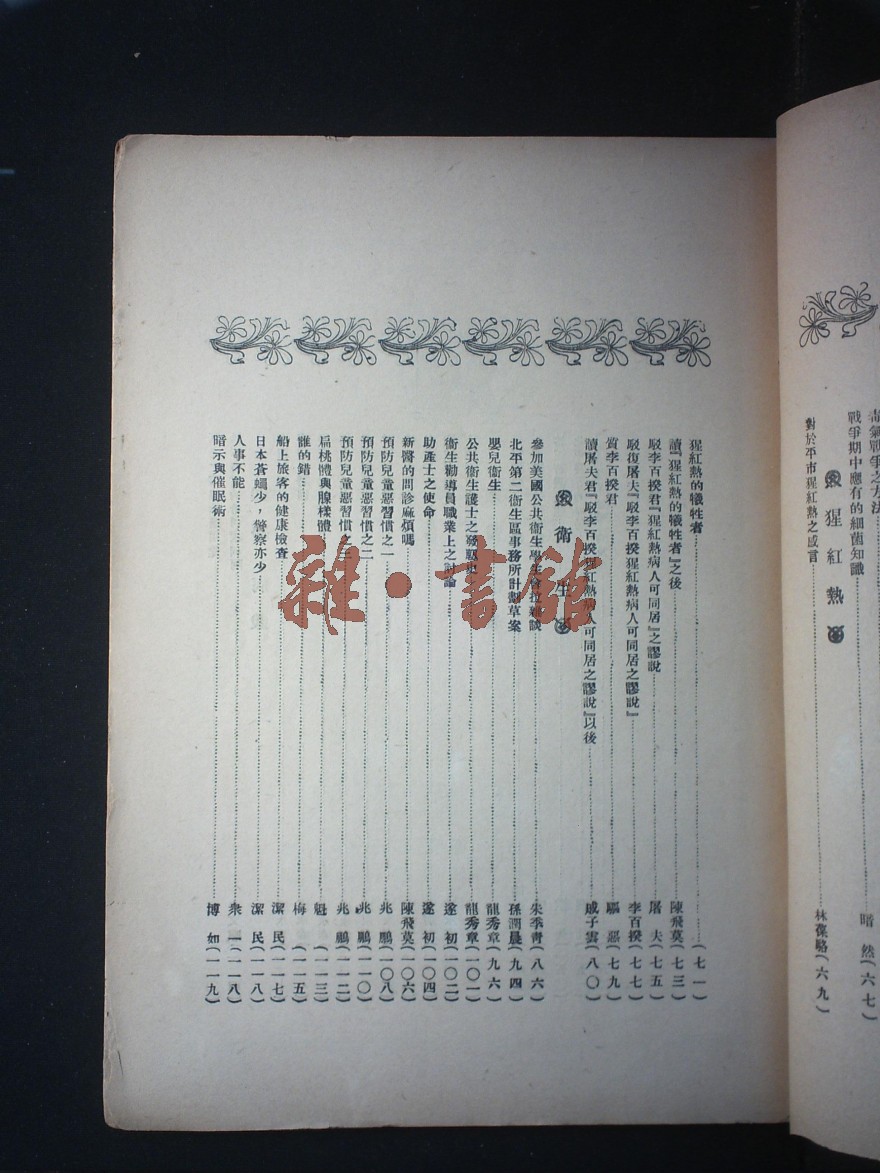 毒氣戰爭之方法
戰爭期中應有的細菌知識 暗然(六七)
猩紅熱
對於平市猩紅熱之感言 林葆駱(六九)
猩紅熱的犧牲者 (七一)
讀『猩紅熱的犧牲者』之後 陳飛莫(七三)
駁李百揆君『猩紅熱病人可同居』之謬說 屠夫(七五)
駁復屠夫『駁李百揆猩紅熱病人可同居之謬說』 李百揆(七七)
質李百揆君 驅惡(七九)
讀屠夫君『駁李百揆猩紅熱病人可同居之謬說』以後 戚子雲(八〇)
衛生
參加美國公共衛生學生會 談 朱季青(八六)
北平第二衞生區事務所計劃草案 孫潤晨(九四)
嬰兒衞生 龍秀章(九六)
公共衞生護士之發 史 龍秀章(一〇一)
衞生勸導員職業上之討論 遂初(一〇二)
助產士之使命 遂初(一〇四)
新醫的問診麻煩嗎 陳飛莫(一〇六)
預防兒童惡習慣之一 兆鵬(一〇八)
預防兒童惡習慣之二 兆鵬(一一〇)
預防兒童惡習慣之三 兆鵬(一一二)
扁桃體與腺樣體 魁(一一三)
誰的錯 梅(一一五)
船上旅客的健康檢查 潔民(一一七)
日本蒼蠅少，警察亦少 潔民(一一八)
人事不能 衆一(一一八)
暗示與催眠術 博如(一一九)
雜·書館